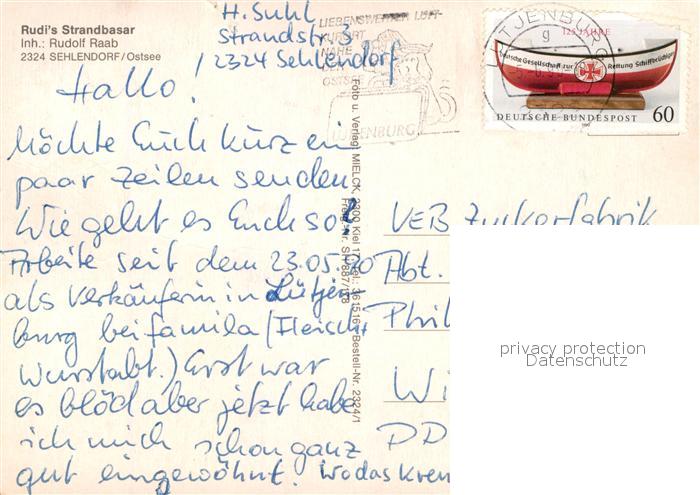 Rudi's Strandbasar
Inh.: Rudolf Raab
2324 SEHLENDORF/Ostsee
H. Suhl
Strandstr. 3
2324 Sehlendorf
LIEBENSWERTER LUFT-
KURORT
NAHE
OSTSEE
LÜTJENBURG
LÜTJENBURG
g
125 JAHRE
Deutsche Gesellschaft zur Rettung Schiffbrüchiger
DEUTSCHE BUNDESPOST 60
1990
Hallo!
Möchte Euch kurz ein
paar Zeilen senden.
Wie geht es Euch so?
Arbeite seit dem 23.05.90
als Verkäuferin in Lütjen-
burg bei famila (Fleisch+
Wurstabt.) Erst war
es blöd aber jetzt habe
ich mich schon ganz
gut eingewöhnt. Wo das
Foto u. Verlag MIELCK 2300 Kiel 17 Tel.: 361516 Bestell-Nr. 2324/1
Freig.-Nr. SH 887/118
VEB Zuckerfabrik
Abt.
Phil
Wi
DD
privacy protection
Datenschutz